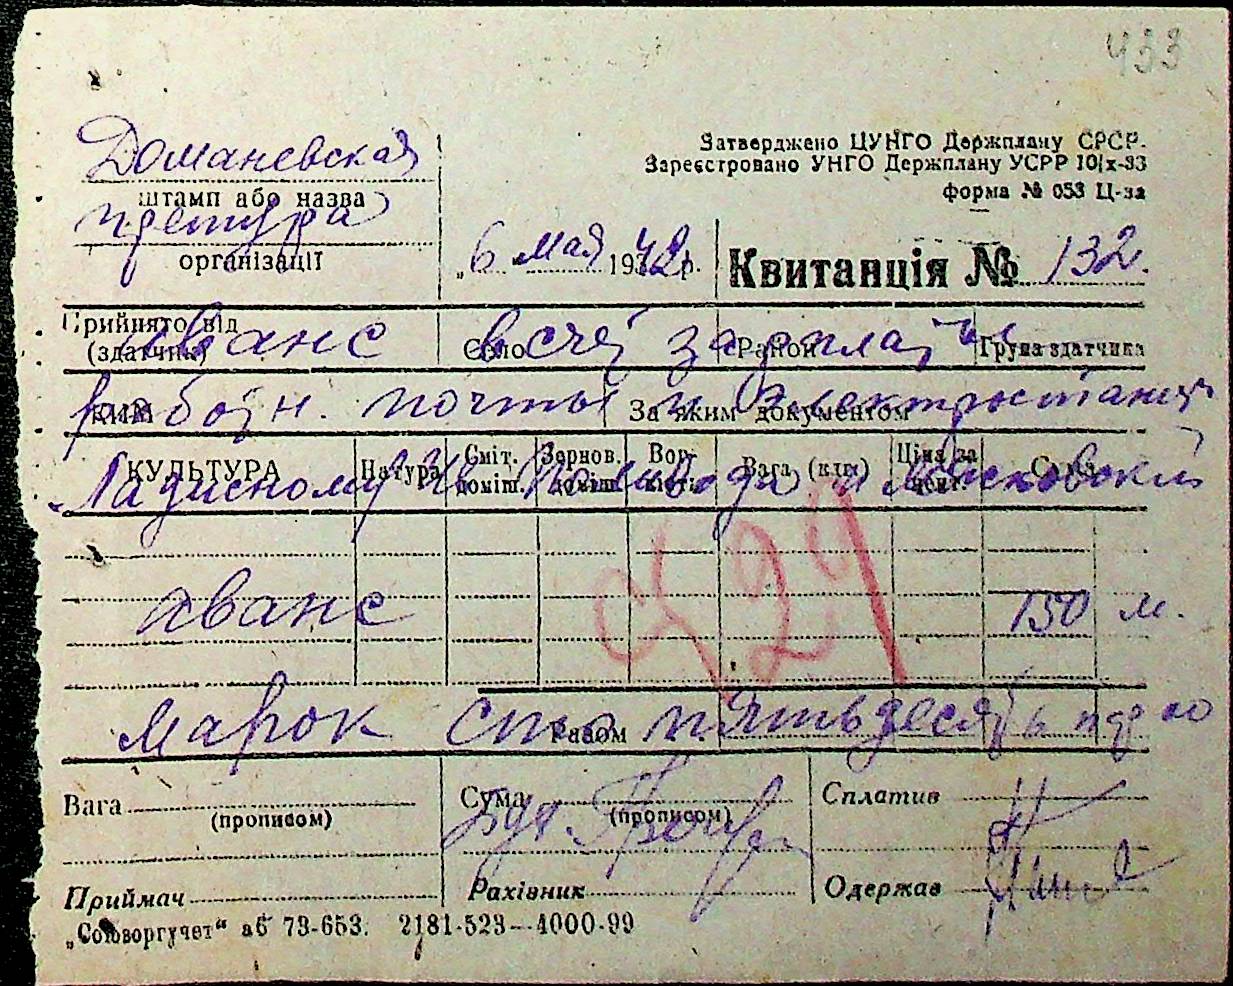 433
Доманевская
штамп або назва
претура
організації
Затверджено ЦУНГО Держплану СРСР.
Зареєстровано УНГО Держплану УСРР 10/х-33
форма № 053 Ц-за
"6 мая 1942 р.
Квитанція № 132.
Прийнято від
(здатчик)
Село
Район
Група здатчика
Аванс в счет зарплаты
КИМ
За яким документом
работн. почты и электростанци
КУЛЬТУРА Натура Сміт. доміш. Зернов. доміш. Вага (клг) Ціна за цент. Сума
Ладисному и Московской
429
аванс 150 м.
Разом
марок сто пятьдесят
Вага
(прописом)
Сума
(прописом)
Сплатив
Бух.
Приймач
Рахівник
Одержав
„Союзоргучет“ аб 73-653. 2181-523—4000-99